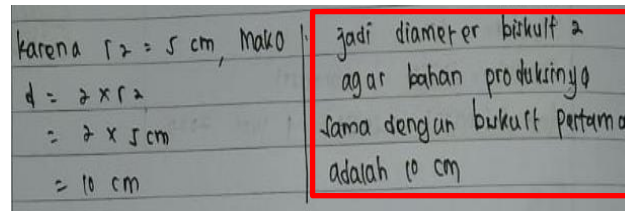 karena r2 = 5 cm, Mako
d = 2 x r2
= 2 x 5 cm
= 10 cm
jadi diameter biskuit 2
agar bahan produksinya
sama dengan biskuit pertama
adalah 10 cm